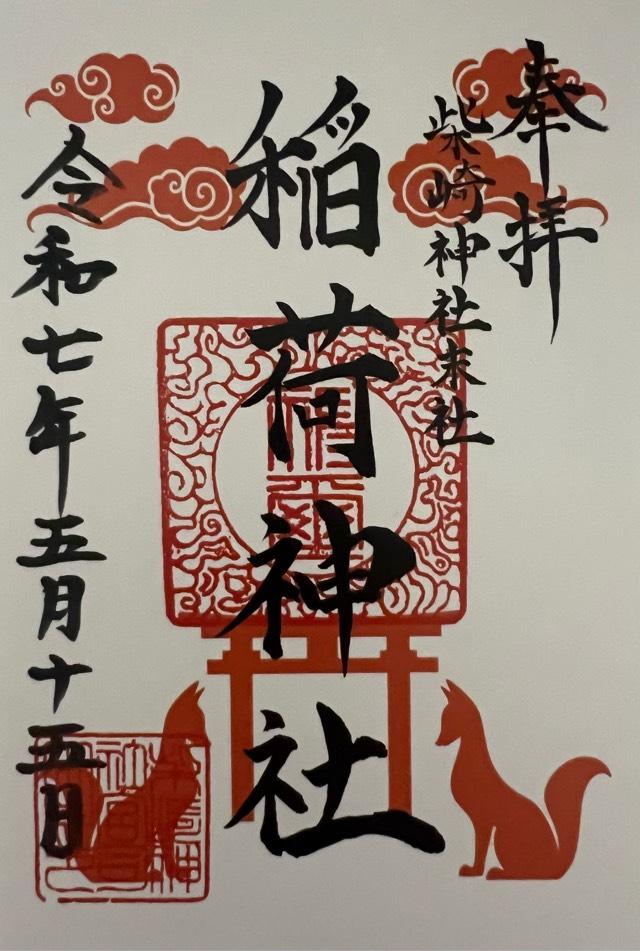 奉拝
柴崎神社末社
稲荷神社
令和七年五月十五日